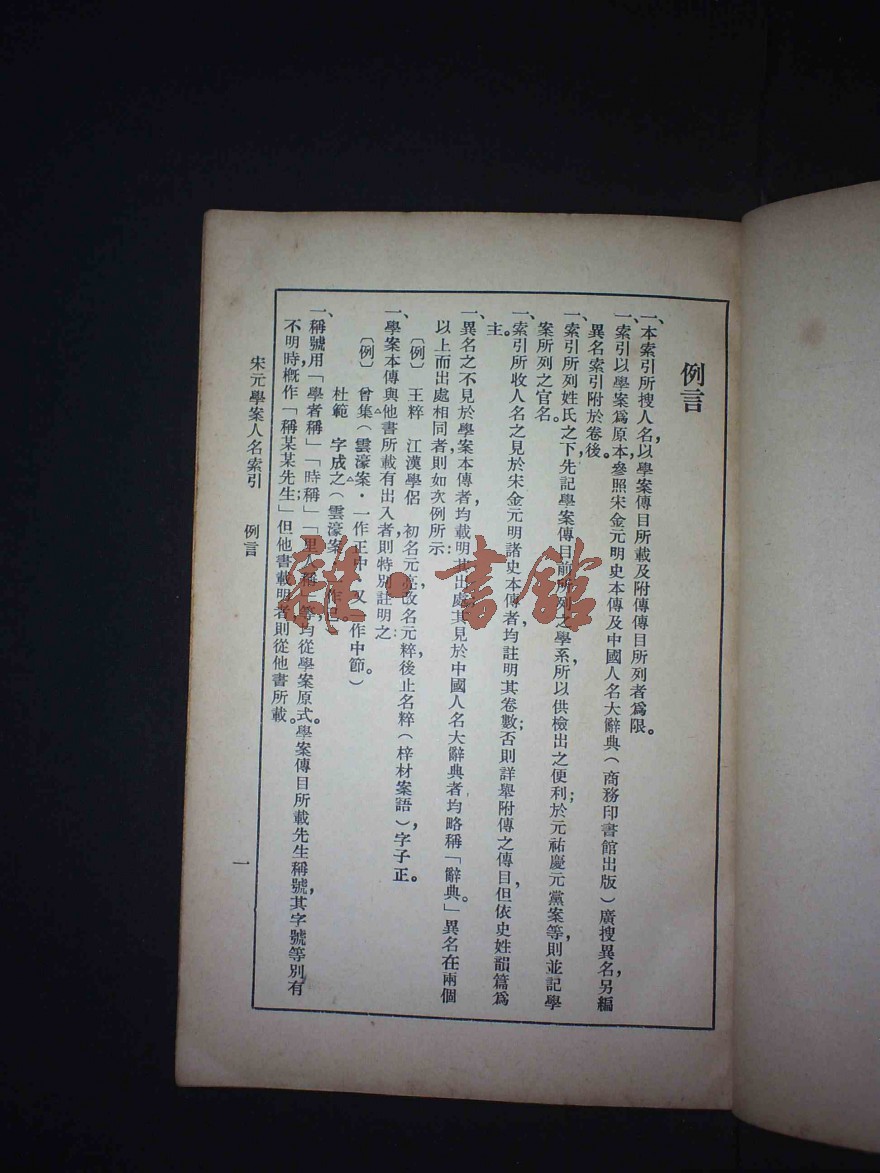 例言
一、本索引所搜人名，以學案傳目所載及附傳傳目所列者爲限。
一、索引以學案爲原本，參照宋金元明史本傳及中國人名大辭典（商務印書館出版）廣搜異名，另編
異名索引附於卷後。
一、索引所列姓氏之下，先記學案傳目前所列之學系，所以供檢出之便利；於元祐慶元黨案等，則並記學
案所列之官名。
一、索引所收人名之見於宋金元明諸史本傳者，均註明其卷數；否則詳舉附傳之傳目，但依史姓韻篇爲
主。
一、異名之不見於學案本傳者，均載明其出處，其見於中國人名大辭典者，均略稱「辭典」。異名在兩個
以上而出處相同者，則如次例所示：
〔例〕 王粹 江漢學侶 初名元亮，改名元粹，後止名粹（梓材案語），字子正。
一、學案本傳與他書所載有出入者，則特別註明之：
〔例〕 曾集（雲濠案·一作正中，又一作中節。）
杜範 字成之（雲濠案
一、稱號用「學者稱」「時稱」「里人稱」等，均從學案原式。學案傳目所載先生稱號，其字號等別有
不明時，槪作「稱某某先生；」但他書載明者，則從他書所載。
宋元學案人名索引 例言
一
雜·書館